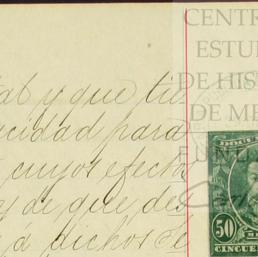 CENTR
ESTU
DE HIS
DE ME
FUND
tal y que ti
acidad para
cuyos efecto
y de que de
á dichos
DOCU
50
CINCUE